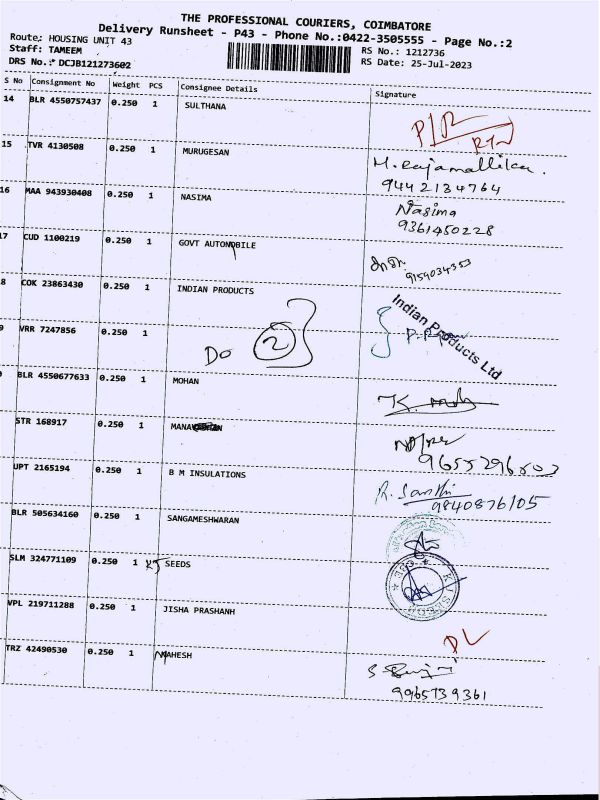 THE PROFESSIONAL COURIERS, COIMBATORE
Delivery Runsheet - P43 - Phone No.:0422-3505555 - Page No.:2
Route: HOUSING UNIT 43
Staff: TAMEEM
RS No.: 1212736
DRS No.: DCJB121273602
RS Date: 25-Jul-2023
S No Consignment No Weight PCS Consignee Details Signature
14 BLR 4550757437 0.250 1 SULTHANA
15 TVR 4130508 0.250 1 MURUGESAN M. Rajamallika.
9442134764
16 MAA 943930408 0.250 1 NASIMA Nasima
9361450228
17 CUD 1100219 0.250 1 GOVT AUTOMOBILE
9159034353
8 COK 23863430 0.250 1 INDIAN PRODUCTS Indian Products Ltd
9 VRR 7247856 0.250 1 Do 2
BLR 4550677633 0.250 1 MOHAN
STR 168917 0.250 1
UPT 2165194 0.250 1 B M INSULATIONS R. Santhi
9840876105
BLR 505634160 0.250 1 SANGAMESHWARAN
SLM 324771109 0.250 1 SEEDS
VPL 219711288 0.250 1 JISHA PRASHANH
TRZ 42490530 0.250 1 MAHESH
9965739361